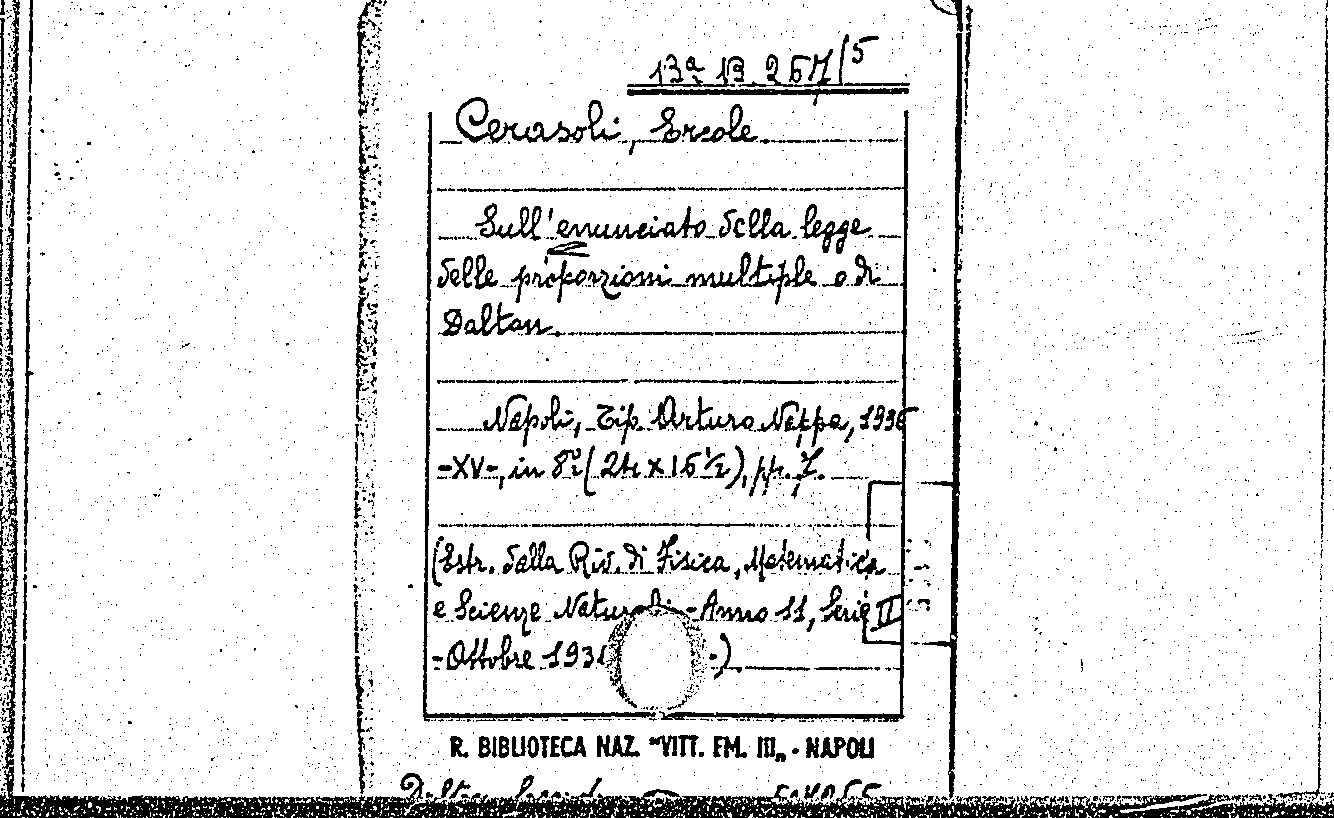 13ª B 257/5
Cerasoli, Ercole.
Sull'enunciato della legge
delle proporzioni multiple o di
Dalton.
Napoli, Tip. Arturo Nappa, 1936
-XV-, in 8º (24 x 16 ½), pp. 7.
(Estr. dalla Riv. di Fisica, Matematica
e Scienze Naturali - Anno 11, Serie II
- Ottobre 193 -)
R. BIBLIOTECA NAZ. "VITT. EM. III„ - NAPOLI